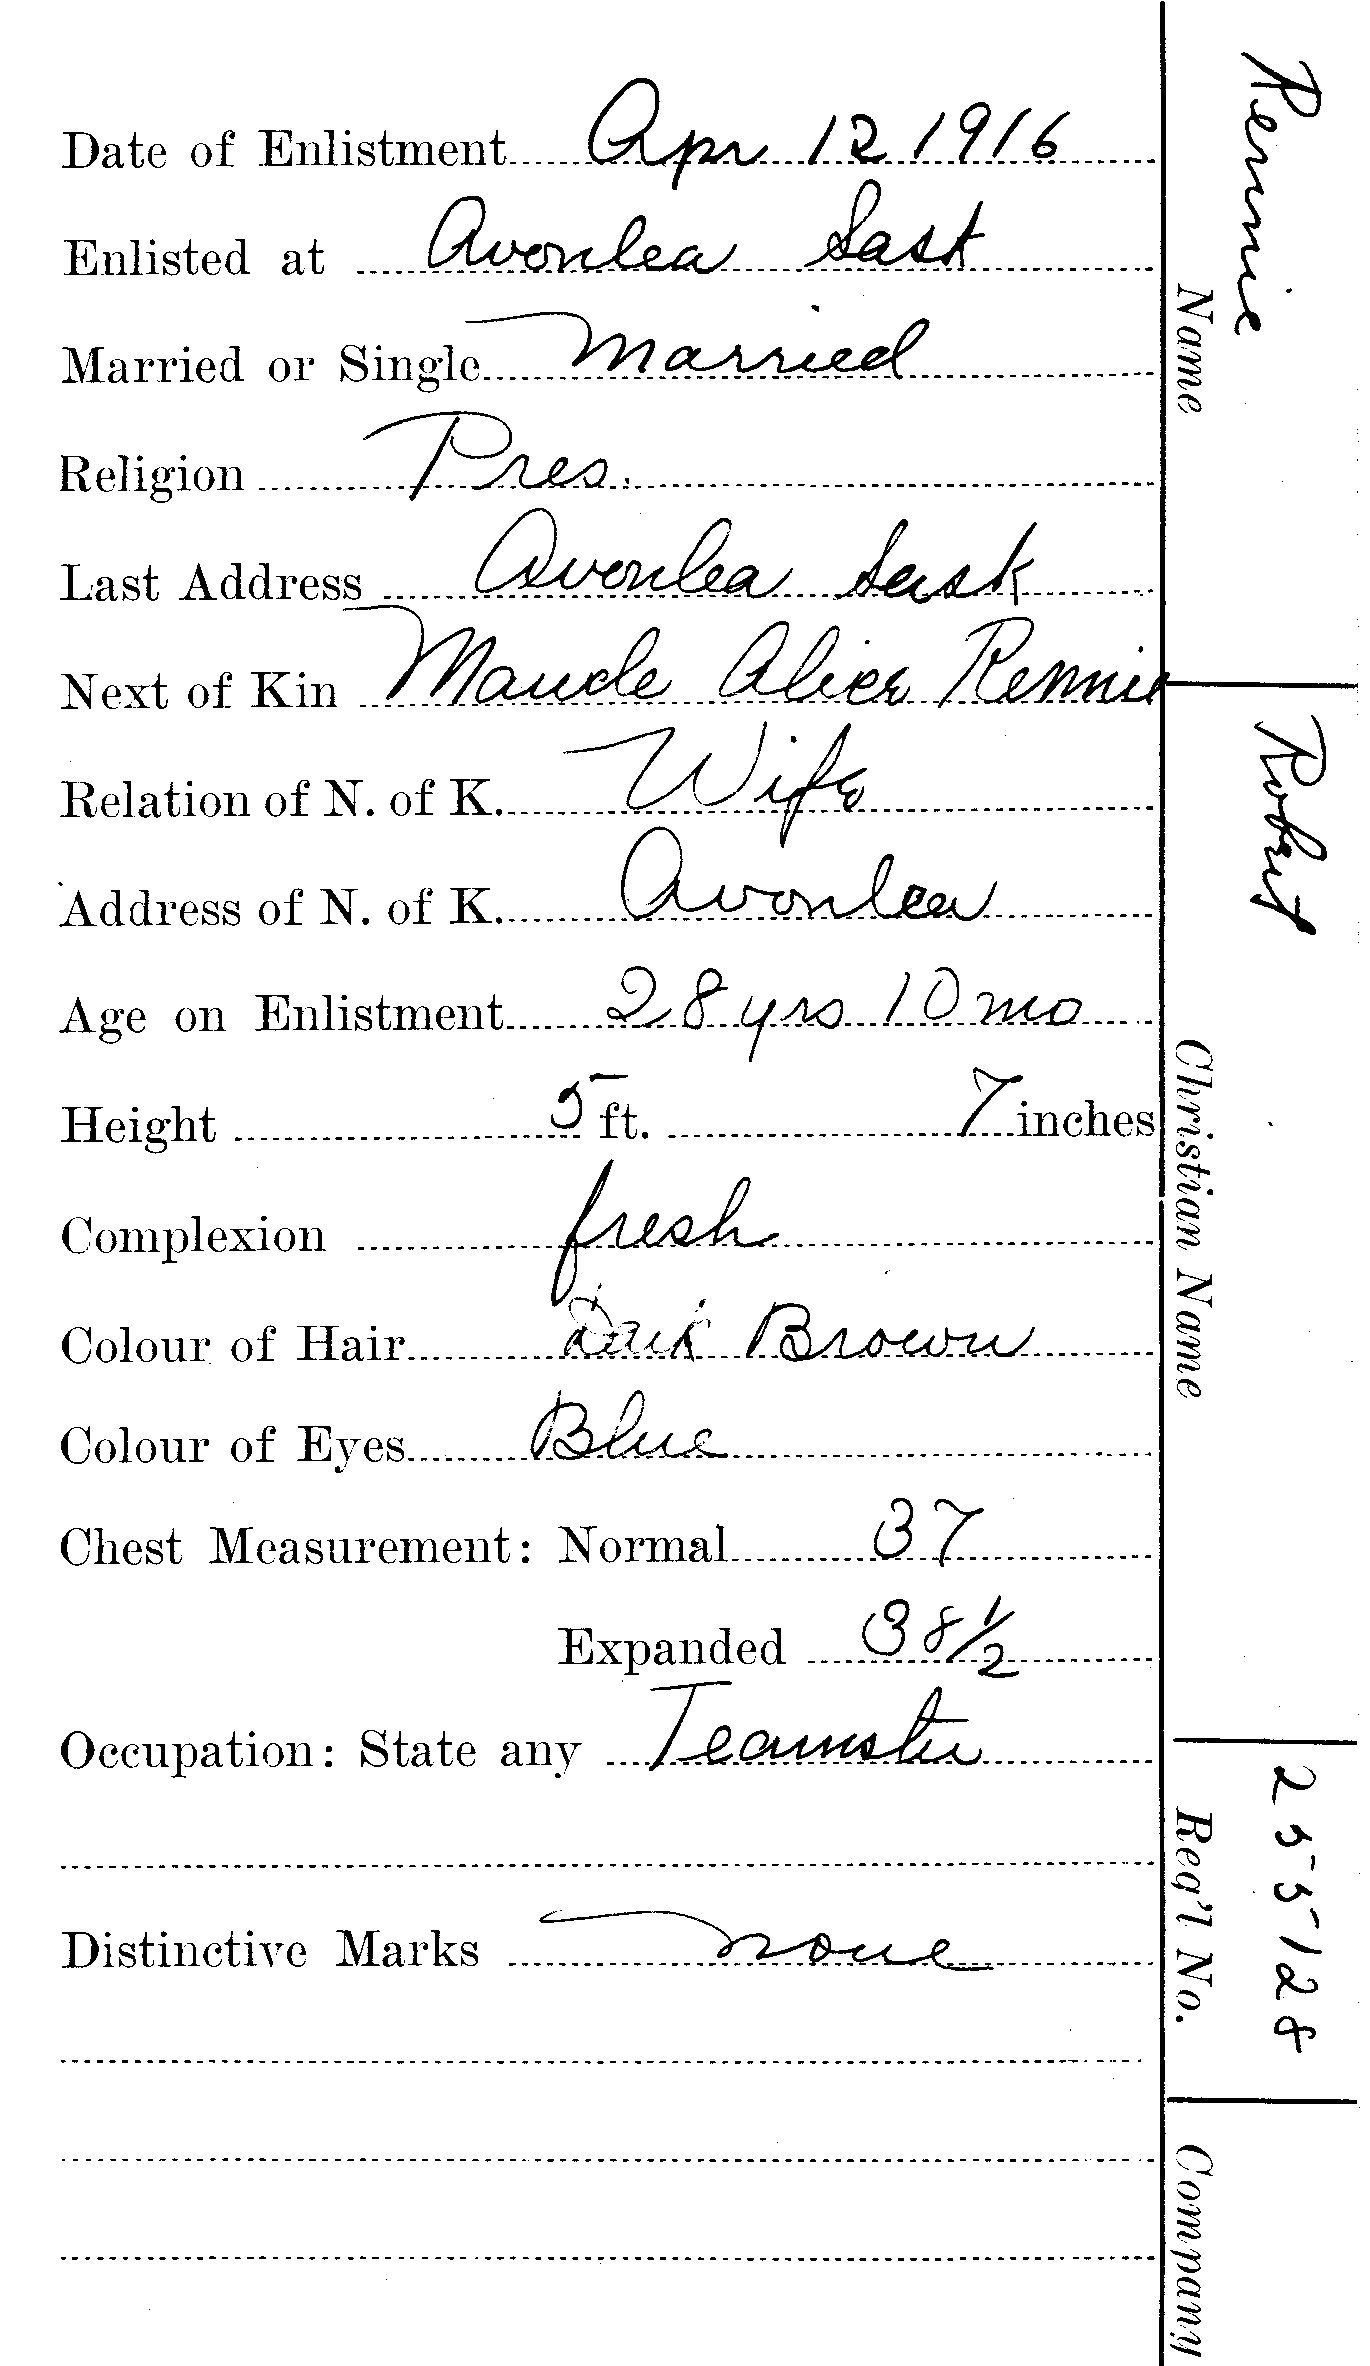 Date of Enlistment Apr 12 1916
Enlisted at Avonlea Sask
Married or Single Married
Religion Pres.
Last Address Avonlea Sask
Next of Kin Maude Alice Rennie
Relation of N. of K. Wife
Address of N. of K. Avonlea
Age on Enlistment 28 yrs 10 mo
Height 5 ft. 7 inches
Complexion fresh
Colour of Hair Dark Brown
Colour of Eyes Blue
Chest Measurement: Normal 37
Expanded 38 1/2
Occupation: State any Teamster
Distinctive Marks none
Rennie
Name
Robert
Christian Name
255128
Reg'l No.
Company